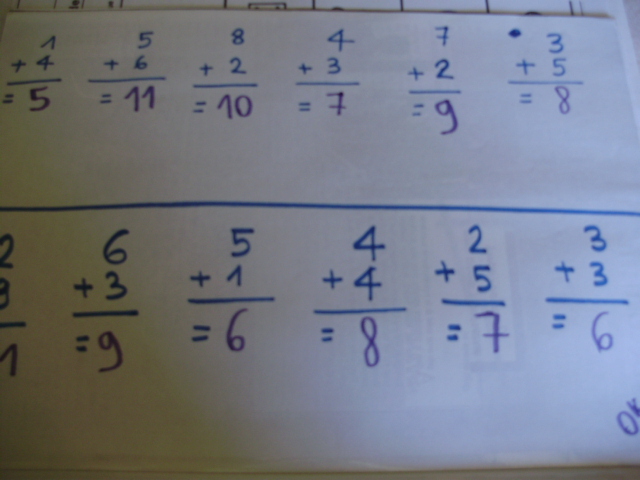 1 5 8 4 7 3
+ 4 + 6 + 2 + 3 + 2 + 5
= 5 = 11 = 10 = 7 = 9 = 8
2 6 5 4 2 3
+ 3 + 1 + 4 + 5 + 3
= 9 = 6 = 8 = 7 = 6
OK